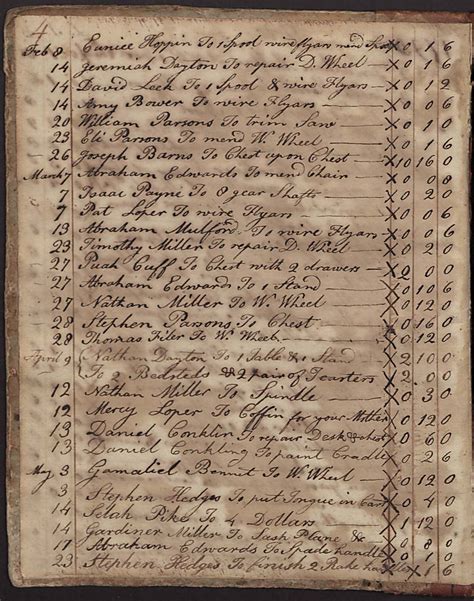 4
Feb 8 Eunice Hoppin To 1 Spool wire flyars mend Spol X 0 1 6
14 Jeremiah Dayton To repair D. Wheel X 0 1 6
14 David Leek To 1 Spool & wire Flyars X 0 1 2
14 Amy Bower To wire Flyars X 0 0 6
20 William Parsons To trim Saw X 0 1 0
23 Eli Parsons To mend W. Wheel X 0 1 6
26 Joseph Barns To Chest upon Chest X 10 16 0
March 7 Abraham Edwards To mend Chair X 0 0 8
7 Isaac Payne To 8 gear Shafts X 0 2 0
9 Pat Loper To wire Flyars X 0 0 6
13 Abraham Mulford To wire Flyars X 0 0 6
23 Timothy Miller To repair D. Wheel X 0 2 0
27 Puah Cuff To Chest with 2 drawers X 2 0 0
27 Abraham Edwards To 1 Stand X 0 10 0
27 Nathan Miller To W. Wheel X 0 12 0
28 Stephen Parsons To Chest X 0 16 0
28 Thomas Filer To W. Wheel X 0 12 0
April 9 Nathan Dayton To 1 Table & 1 Stand X 1 10 0
To 2 Bedsteds & 2 pair of Tearters X 2 00 0
12 Nathan Miller To Spindle X 0 3 0
12 Mercy Loper To Coffin for your Mother X 0 12 0
13 Daniel Conklin To repair Desk & chest X 0 6 0
13 Daniel Conkling To paint Cradle X 0 2 6
May 3 Gamaliel Bennet To W. Wheel X 0 12 0
3 Stephen Hedges To put Tongue in Cart X 0 4 0
14 Selah Pike To 4 Dollars X 1 12 0
14 Gardiner Miller To Sash Plane & X 0 8 0
17 Abraham Edwards To Spade handle X 0 1 0
23 Stephen Hedges To finish 2 Rake handles X 1 6